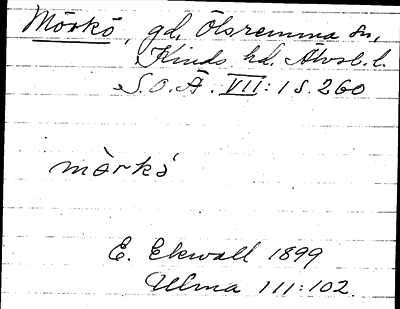 Mörkö, gd, Ölsremma sn,
Kinds hd. Älvsb. l.
S.O.Ä. VII:1 s. 260
mörkö
E. Ekwall 1899
Ulma 111:102.